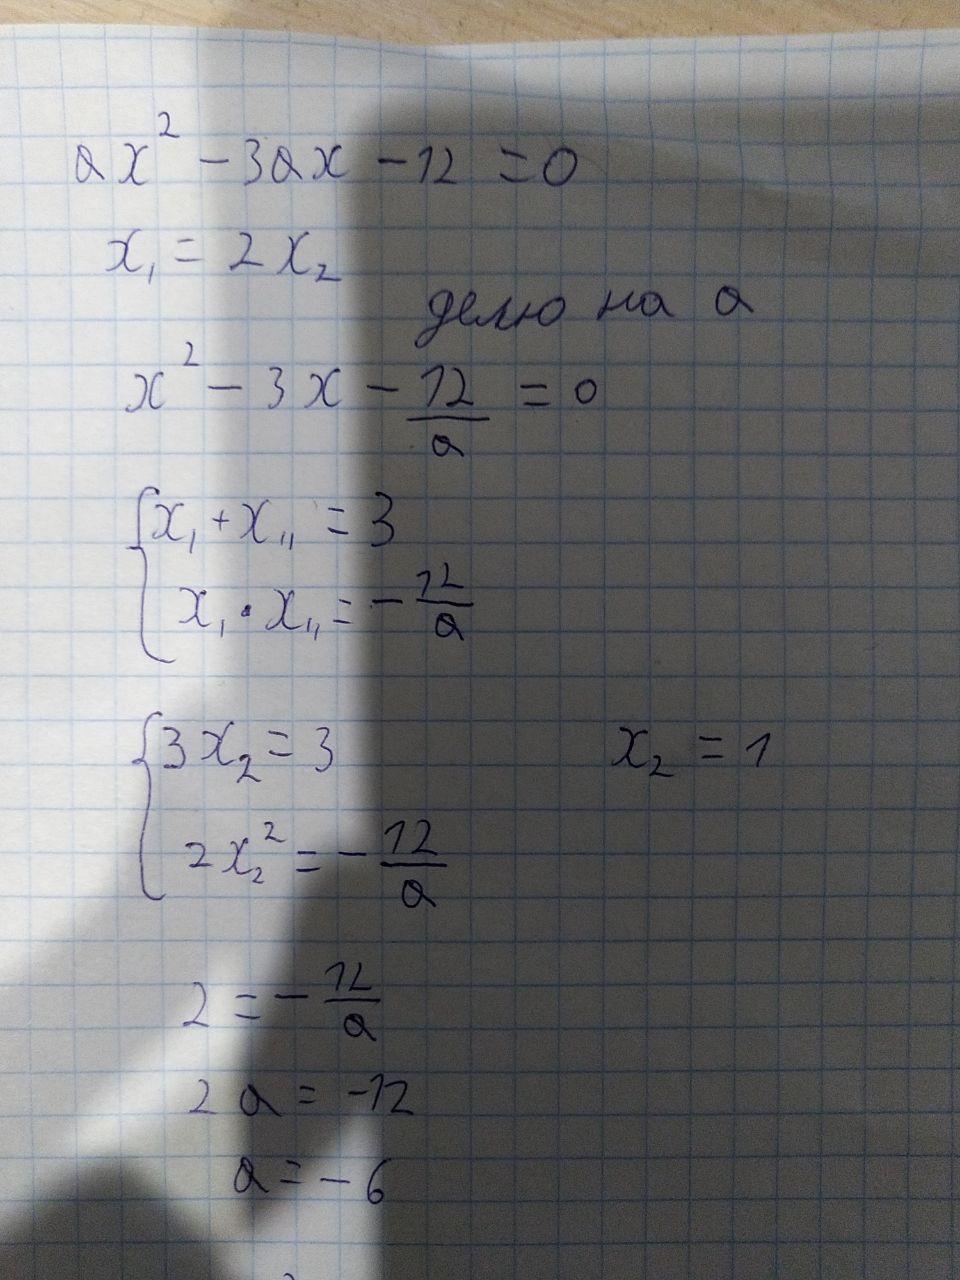 ax² - 3ax - 12 = 0
x₁ = 2x₂
делю на a
x² - 3x - 12/a = 0
x₁ + x₁₁ = 3
x₁ · x₁₁ = - 12/a
3x₂ = 3 x₂ = 1
2x₂² = - 12/a
2 = - 12/a
2a = -12
a = - 6